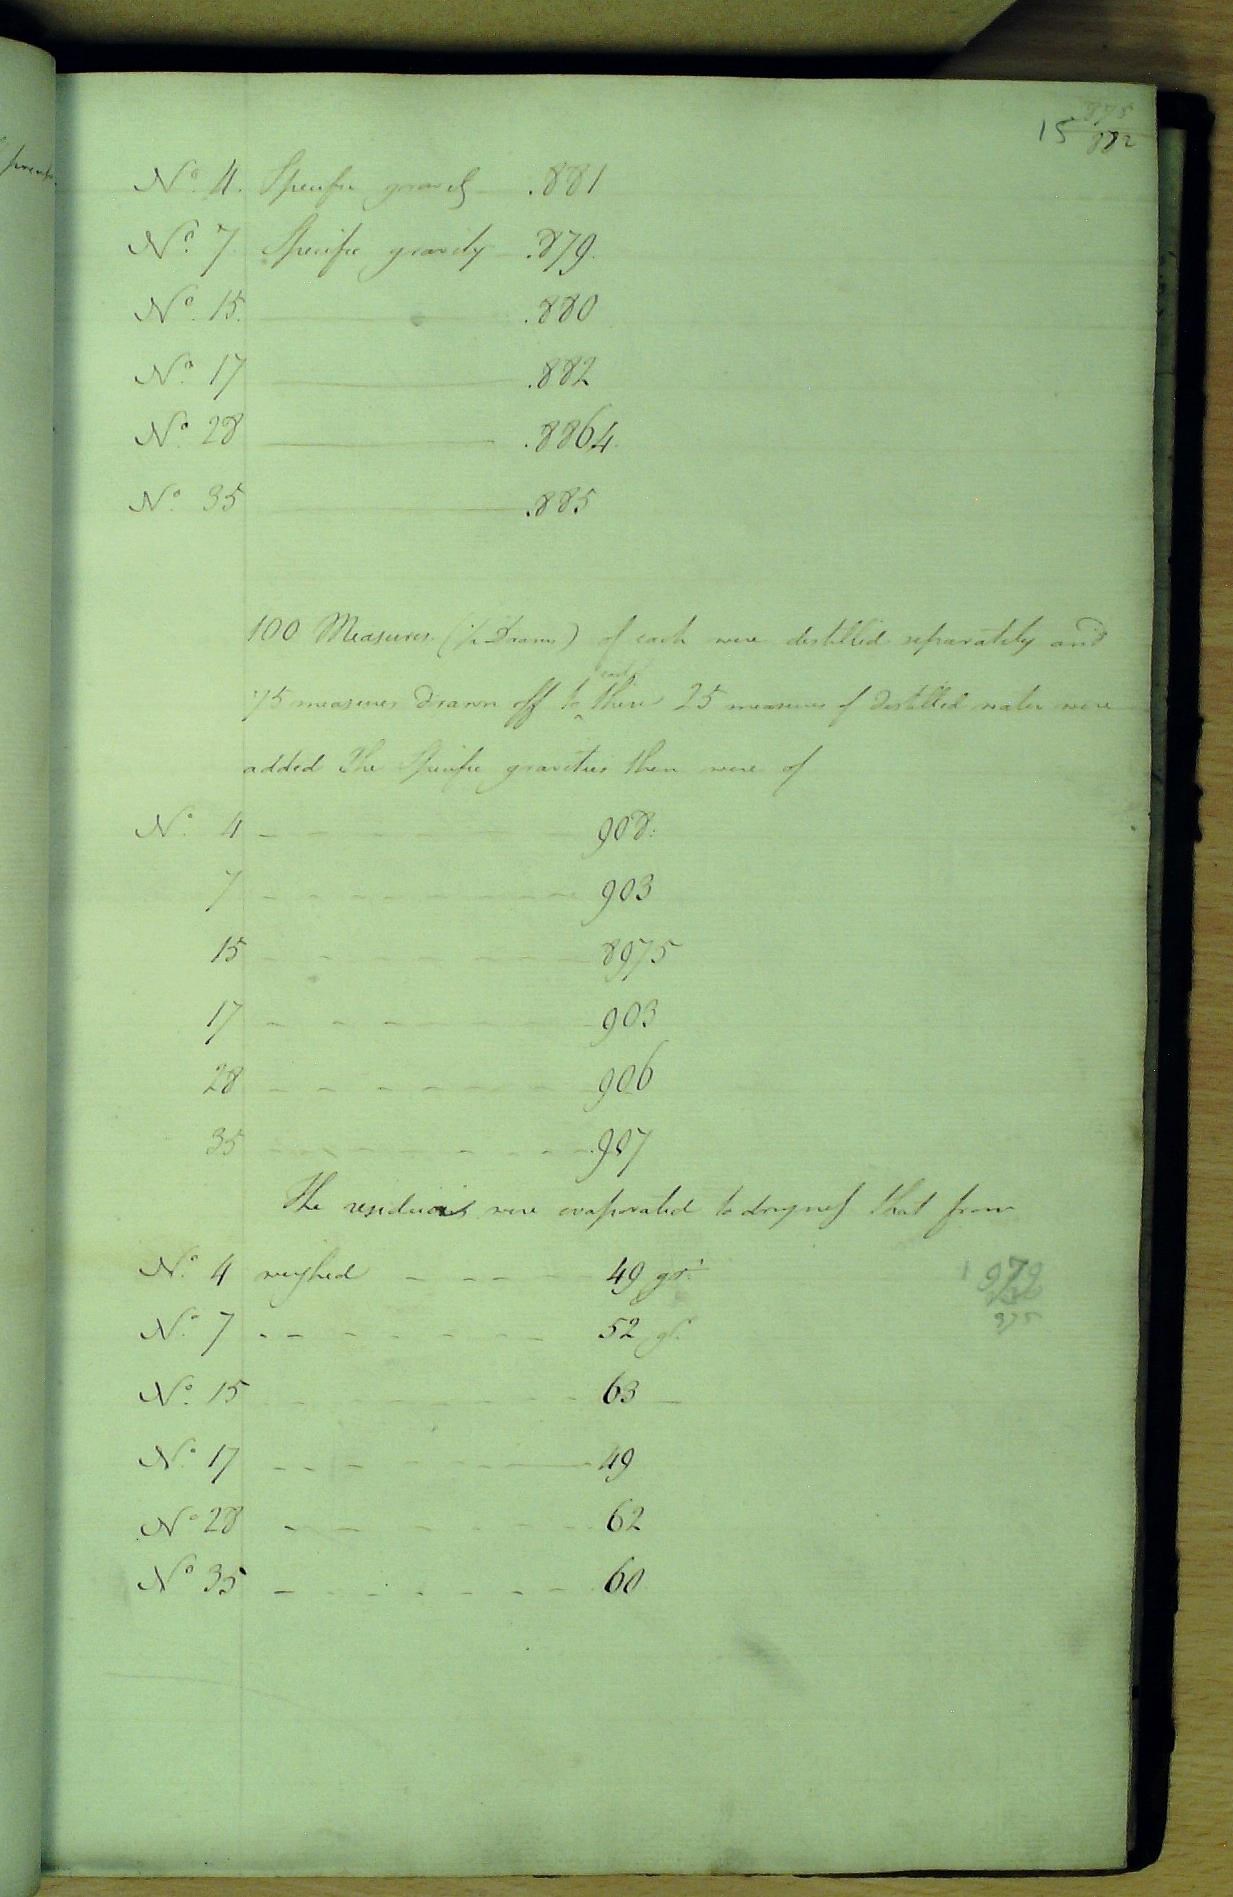 15
882
No. 4. Specific gravity .881
No. 7 Specific gravity .879.
No. 15. .880
No. 17 .882
No. 28 .8864
No. 35 .885
100 Measures (½ Drams) of each were distilled separately and
75 measures drawn off to each these 25 measures of distilled water were
added The Specific gravities then were of
No. 4 908.
7 903
15 8975
17 903
28 906
35 907
The residuals were evaporated to dryness that from
No. 4 weighed 49 grs.
No. 7 52 gs.
No. 15 63
No. 17 49
No 28 62
No 35 60